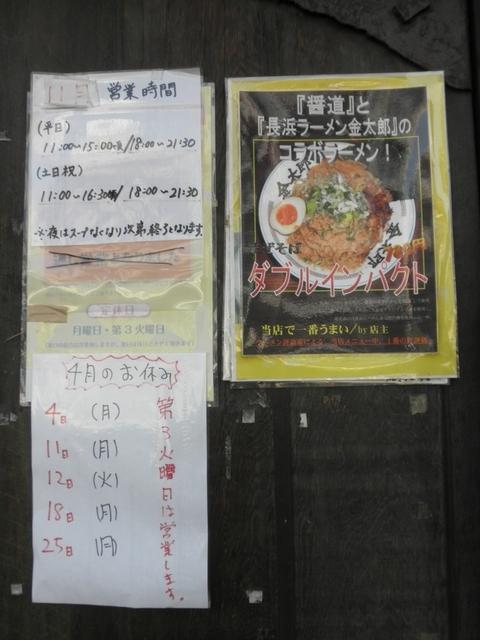 11月 営業時間
(平日)
11:00〜15:00頃/18:00〜21:30
(土日祝)
11:00〜16:30頃/18:00〜21:30
※夜はスープなくなり次第終了となります
定休日
月曜日・第3火曜日
4月のお休み
4日 (月)
11日 (月)
12日 (火)
18日 (月)
25日 (月)
第3火曜日は営業します。
『醤道』と
『長浜ラーメン金太郎』の
コラボラーメン!
金太郎
そば
ダブルインパクト
当店で一番うまい/by店主